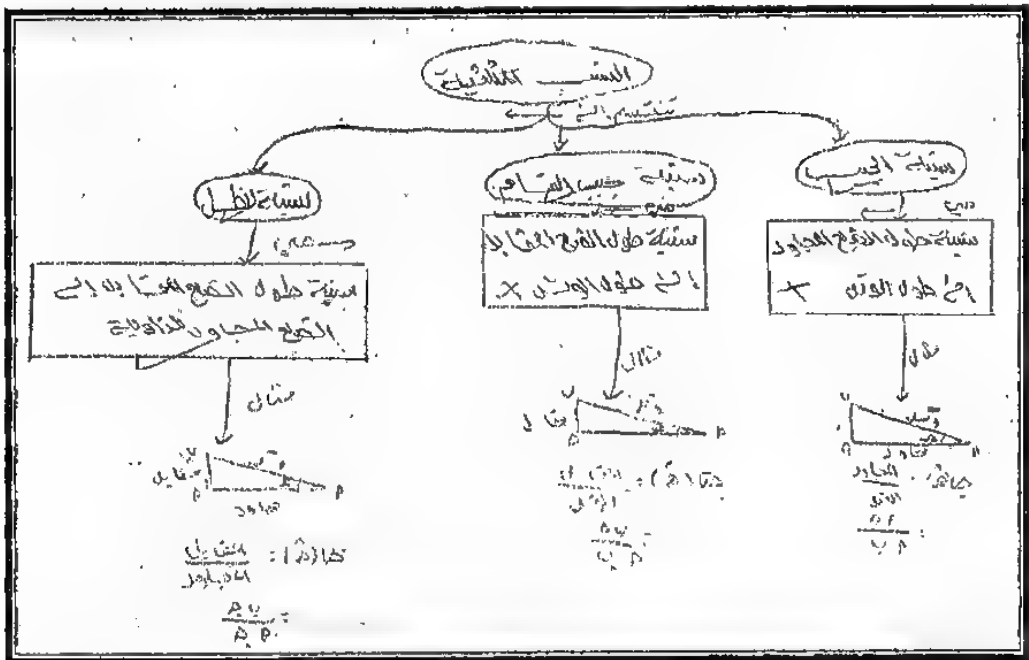 النسب المثلثية
تنقسم إلى
نسبة الجيب
هي
نسبة طول الضلع المجاور
إلى طول الوتر ×
مثال
ب
وتر
هـ
مجاور
جـ
أ
جا هـ = المجاور
الوتر
= أ جـ
أ ب
نسبة جيب التمام
نسبة طول الضلع المقابلا
إلى طول الوتر ×
مثال
وتر
مقابل
جـ
أ
جتا (هـ) = المقابل
الوتر
= ب جـ
أ ب
نسبة الظل
نسبة طول الضلع المقابلا إلى
الضلع المجاور للزاوية
مثال
ب
وتر
مقابل
جـ
أ
مجاور
ظا (هـ) = المقابل
المجاور
= ب جـ
أ جـ